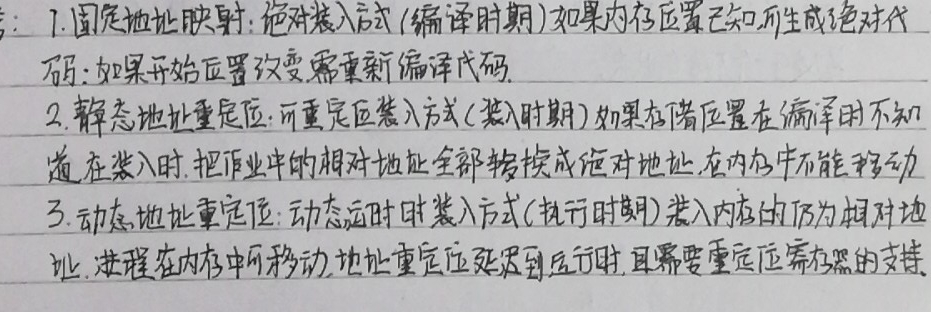 ：1.固定地址映射：绝对装入方式(编译时期)如果内存位置已知,可生成绝对代
码；如果开始位置改变,需重新编译代码.
2.静态地址重定位：可重定位装入方式(装入时期)如果存储位置在编译时不知
道,在装入时,把作业中的相对地址全部转换成绝对地址,在内存中不能移动
3.动态地址重定位：动态运时时装入方式(执行时期)装入内存的仍为相对地
址,进程在内存中可移动,地址重定位延迟到运行时,且需要重定位寄存器的支持.